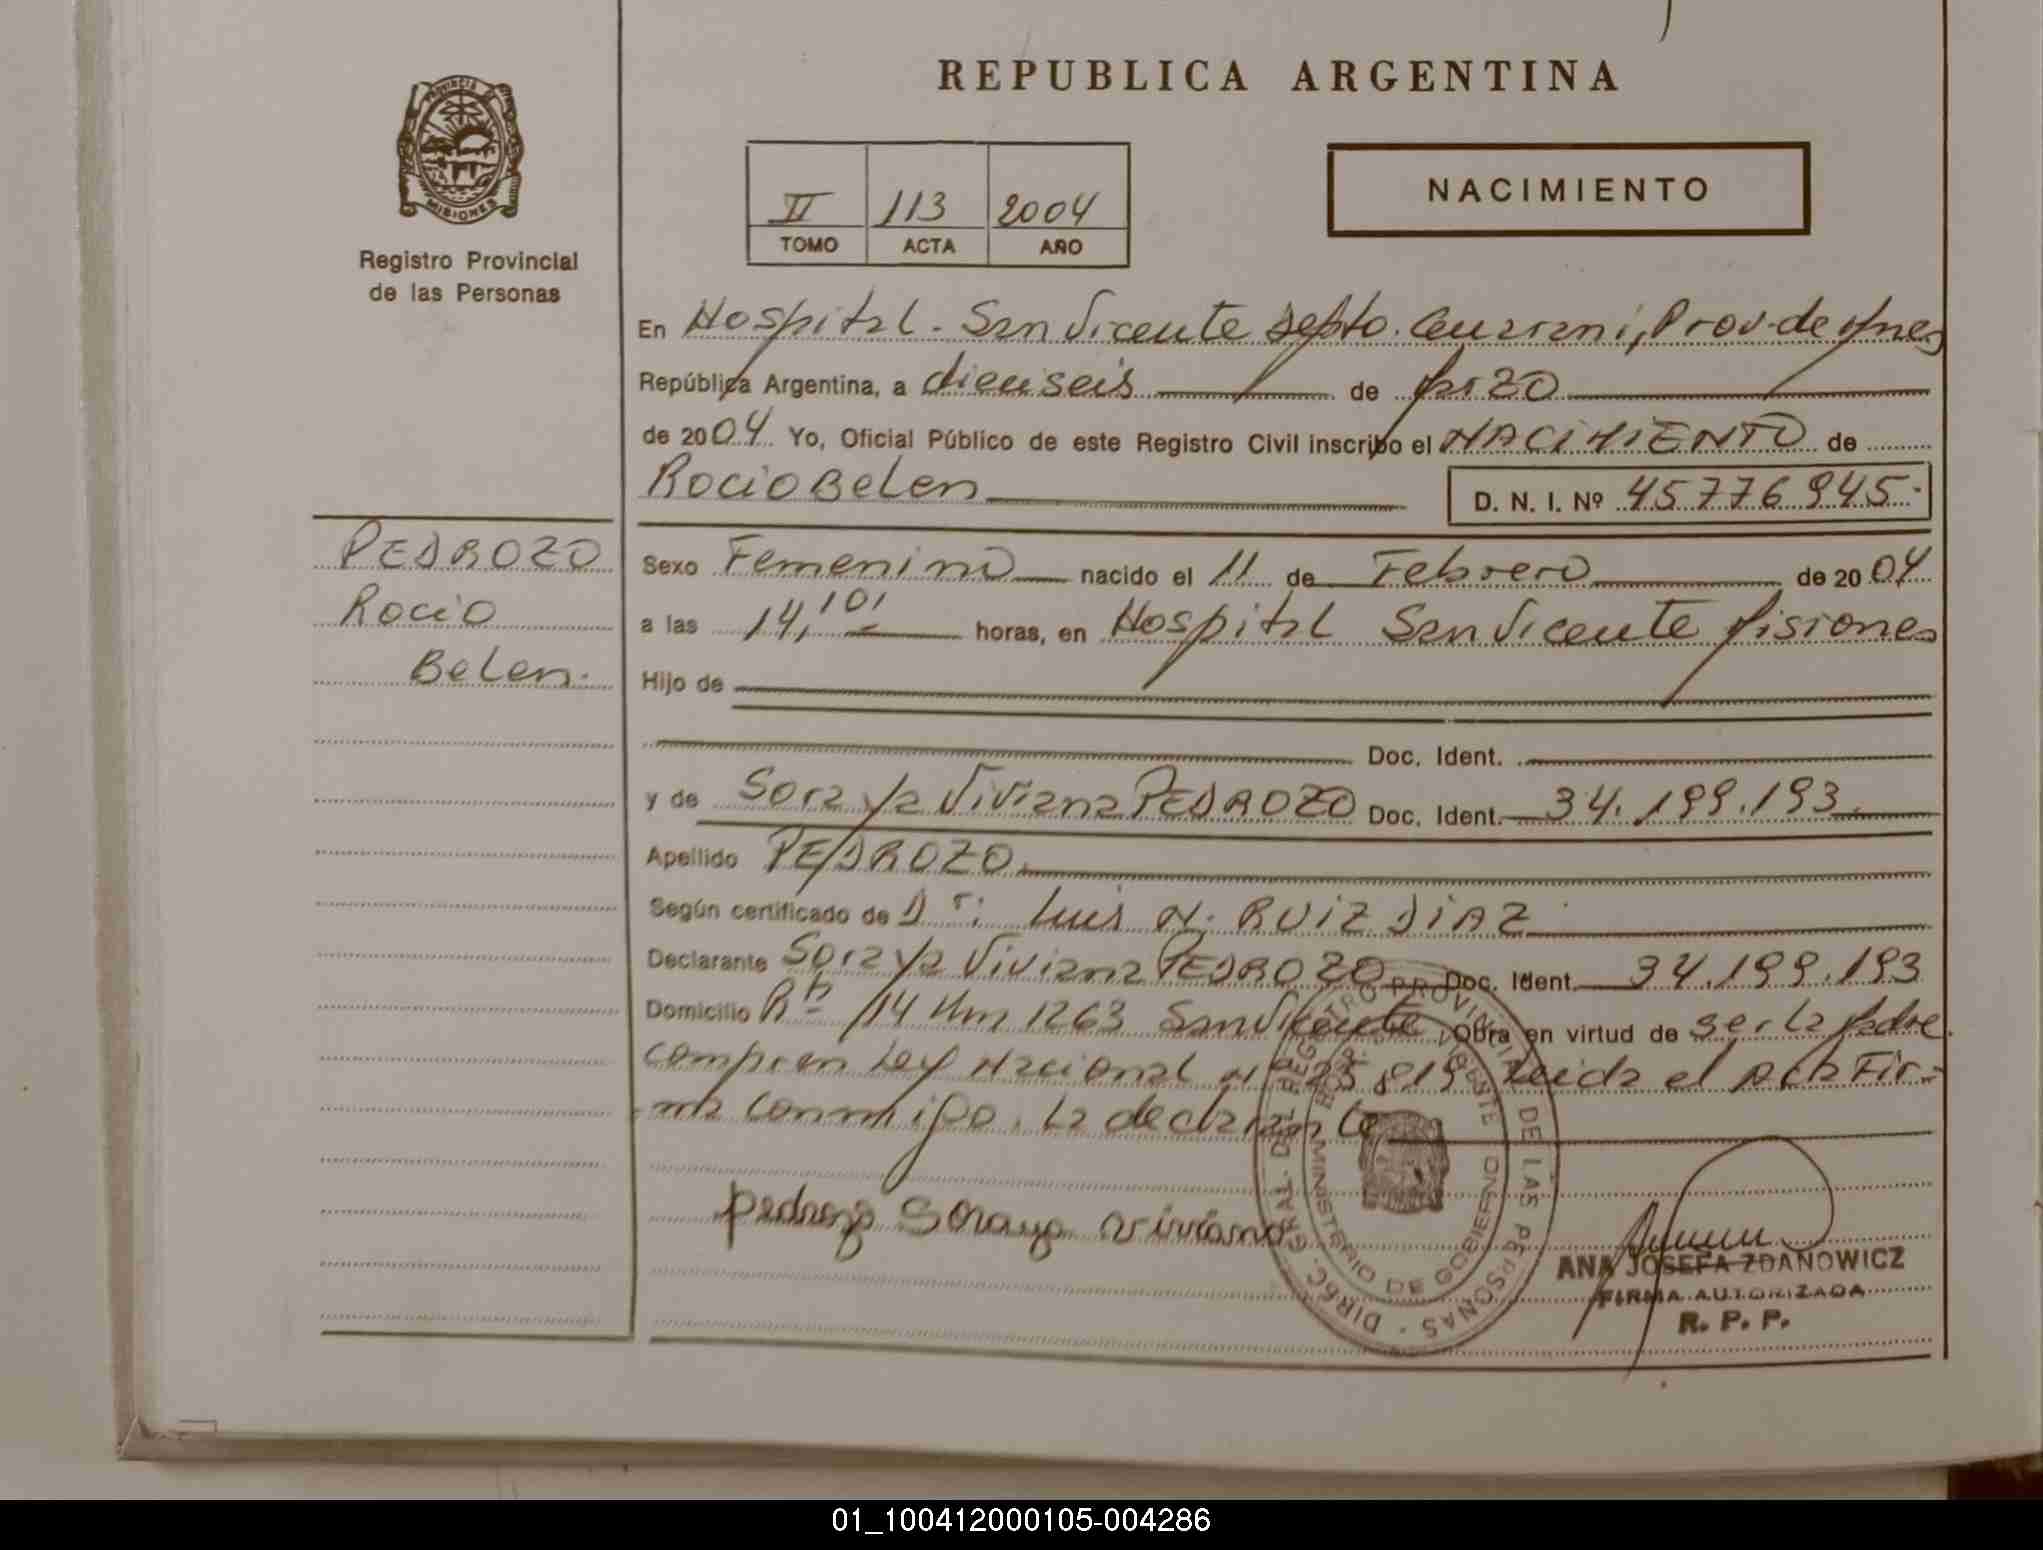 REPUBLICA ARGENTINA
PROVINCIA DE
MISIONES
Registro Provincial
de las Personas
II 113 2004
TOMO ACTA AÑO
NACIMIENTO
En Hospital - San Vicente depto. Guarani, Prov. de Mnes
República Argentina, a dieciseis de Marzo
de 2004 Yo, Oficial Público de este Registro Civil inscribo el NACIMIENTO de
Rocio Belen D. N. I. Nº 45776945
PEDROZO
Rocio
Belen.
Sexo Femenino nacido el 11 de Febrero de 2004
a las 14,10, horas, en Hospital San Vicente Misiones
Hijo de
Doc. Ident.
y de Soraya Viviana PEDROZO Doc. Ident. 34.199.193
Apellido PEDROZO
Según certificado de Dr: Luis N. RUIZ DIAZ
Declarante Soraya Viviana PEDROZO Doc. Ident. 34.199.193
Domicilio Rta 14 Km 1263 San Vicente Obra en virtud de ser la Madre
Compren Ley Nacional Nº 25819 Leida el Acta Fir-
ma conmigo. La declarante
Pedrozo Soraya Viviana
DIREC. GRAL. DEL REGISTRO PROVINCIAL DE LAS PERSONAS
MINISTERIO DE GOBIERNO
ANA JOSEFA ZDANOWICZ
FIRMA AUTORIZADA
R. P. P.
01_100412000105-004286